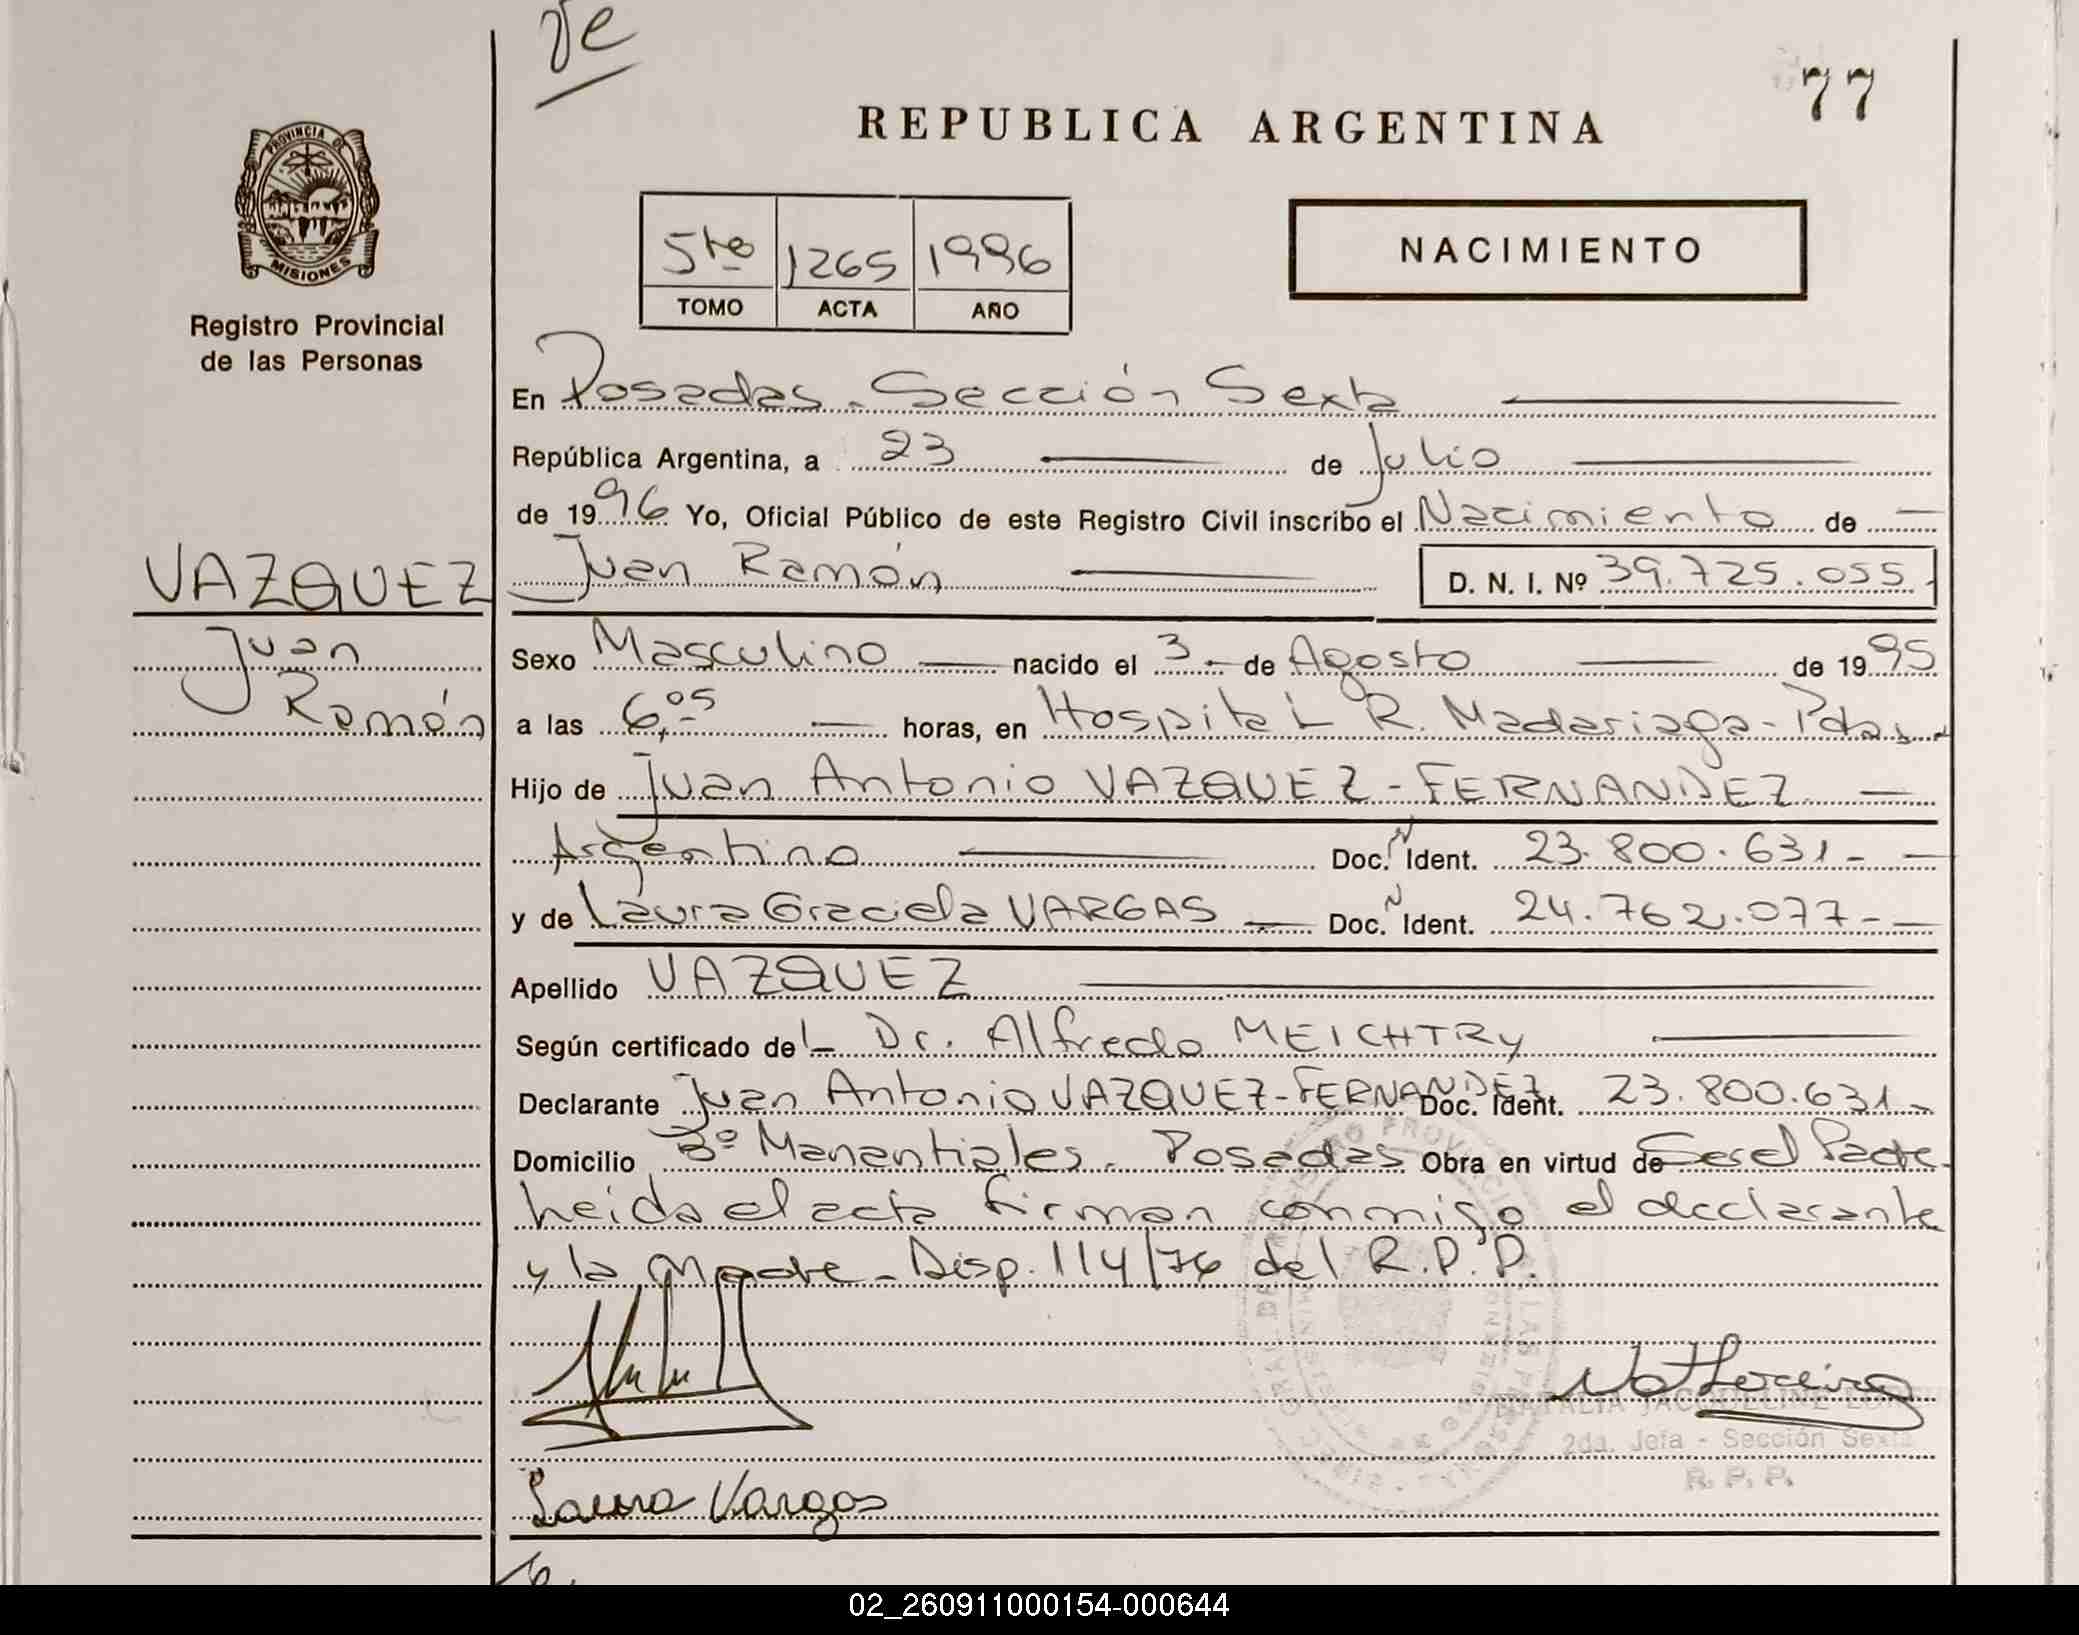 77
REPUBLICA ARGENTINA
PROVINCIA DE
MISIONES
Registro Provincial
de las Personas
5to 1265 1996
TOMO ACTA AÑO
NACIMIENTO
En Posadas - Sección Sexta
República Argentina, a 23 de Julio
de 1996 Yo, Oficial Público de este Registro Civil inscribo el Nacimiento de
VAZQUEZ
Juan
Ramón
Juan Ramón D. N. I. Nº 39.725.055
Sexo Masculino nacido el 3 - de Agosto de 1995
a las 6,05 horas, en Hospital R. Madariaga - Pdas
Hijo de Juan Antonio VAZQUEZ - FERNANDEZ
Argentino Doc. N Ident. 23.800.631 -
y de Laura Graciela VARGAS Doc. N Ident. 24.762.077 -
Apellido VAZQUEZ
Según certificado del Dr. Alfredo MEICHTRY
Declarante Juan Antonio VAZQUEZ - FERNANDEZ Doc. Ident. 23.800.631 -
Domicilio Bº Manantiales - Posadas Obra en virtud de Ser el Padre
Leida el acta firman conmigo el declarante
y la Madre - Disp. 114/76 del R.P.P.
NATALIA JACQUELINE
2da. Jefa - Sección Sexta
R. P. P.
Laura Vargas
02_260911000154-000644